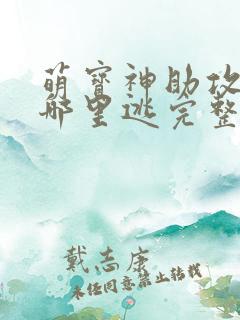 萌宝神助攻
哪里逃完整
戴志康
未经同意禁止转载